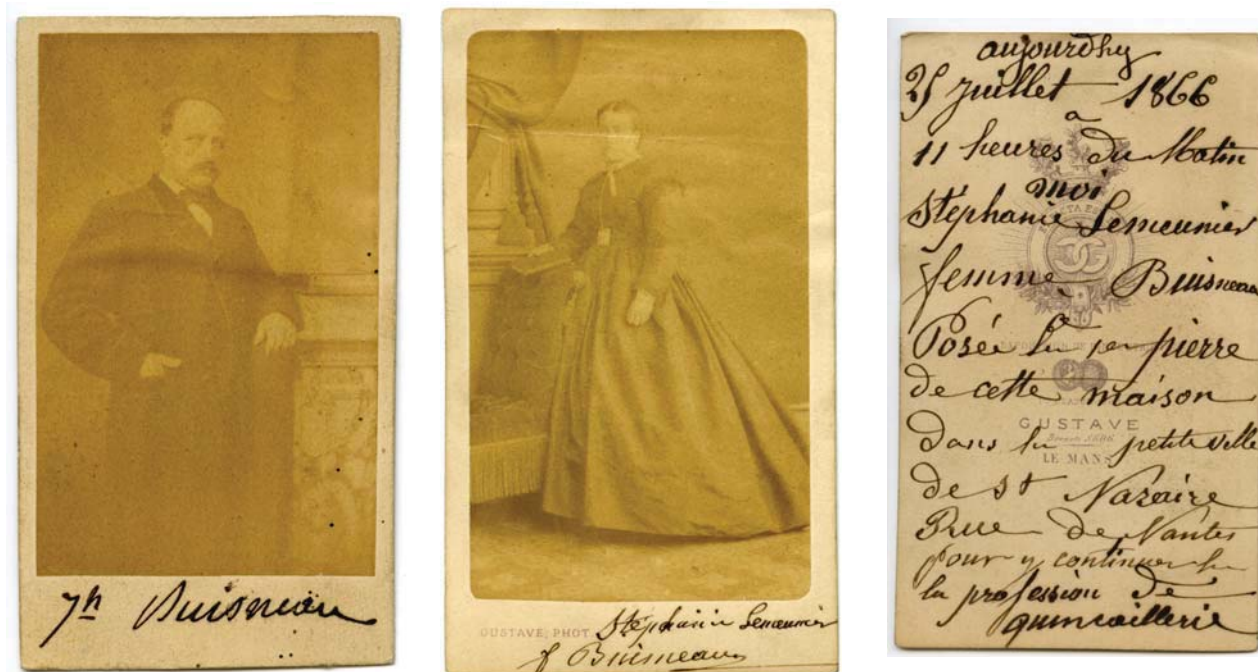 Buisneau
GUSTAVE, PHOT
Stéphanie Lemeunier
f Buisneau
aujourdhy
25 juillet 1866
a
11 heures du Matin
moi
Stéphanie Lemeunier
femme Buisneau
Posée la 1er pierre
de cette maison
dans la petite ville
de st Nazaire
Rue de Nantes
pour y continuer la
la profession de
quincaillerie
GUSTAVE
LE MANS